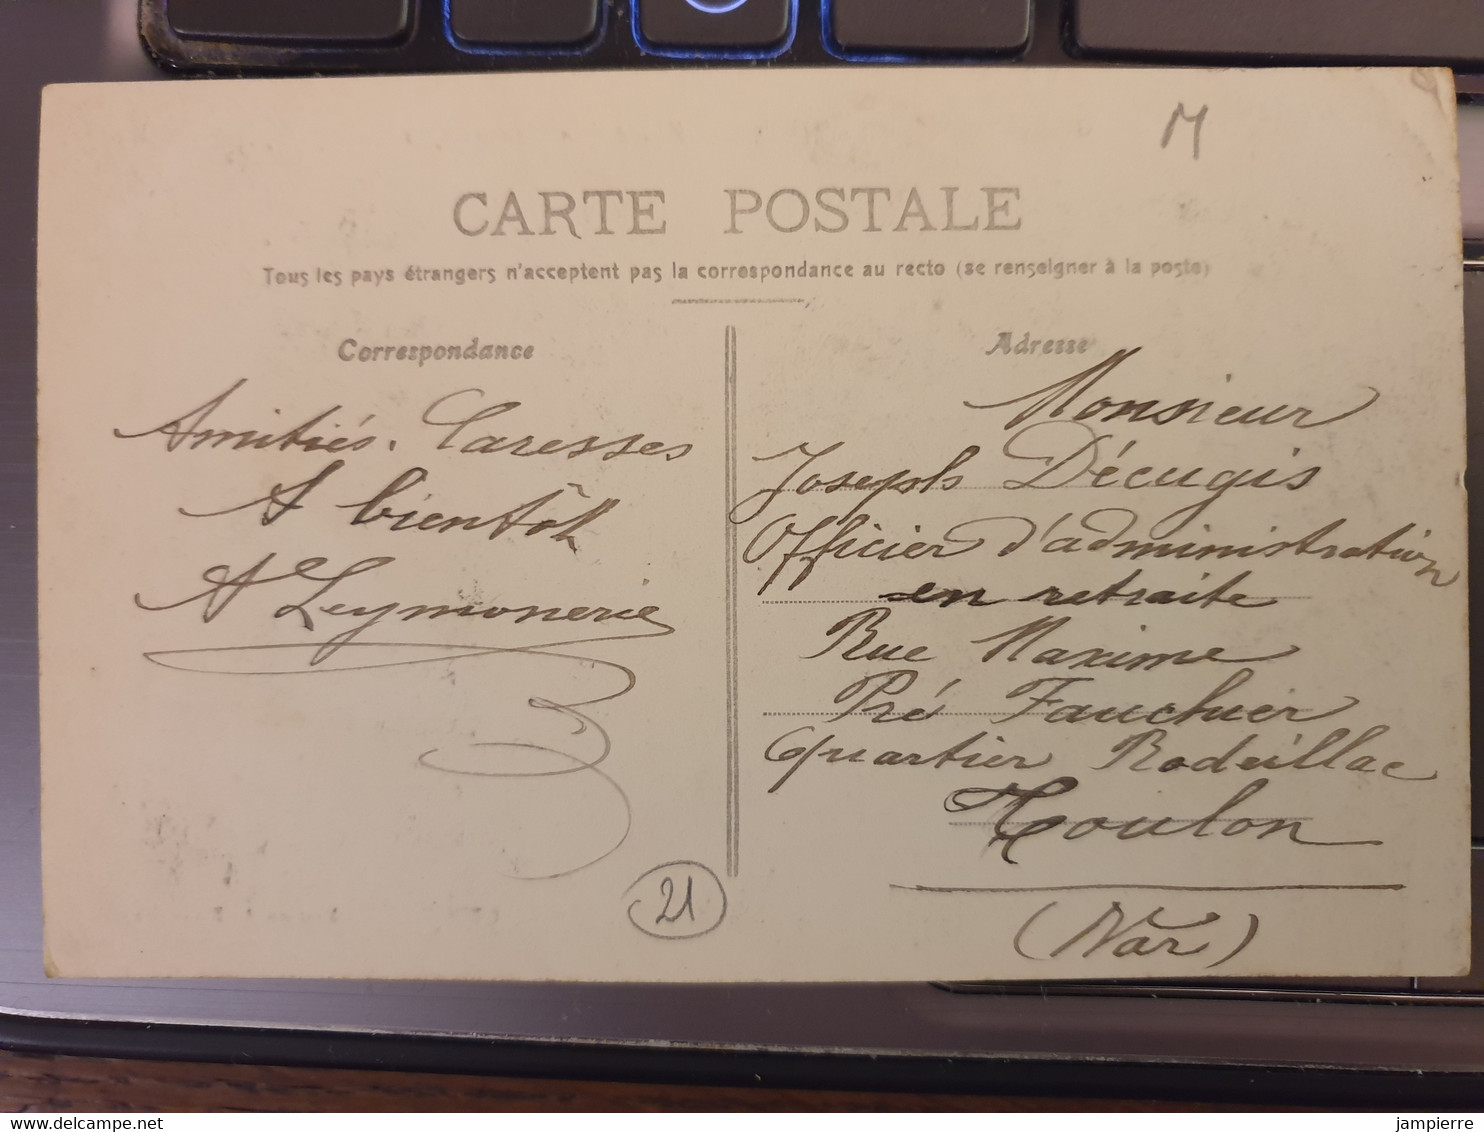 M
CARTE POSTALE
Tous les pays étrangers n'acceptent pas la correspondance au recto (se renseigner à la poste)
Correspondance
Amitiés. Caresses
A bientôt
A Leymonerie
21
Adresse
Monsieur
Joseph Décugis
Officier d'administration
en retraite
Rue Maxime
Pré Fauchier
Quartier Rodeillac
Toulon
(Var)
jampierre